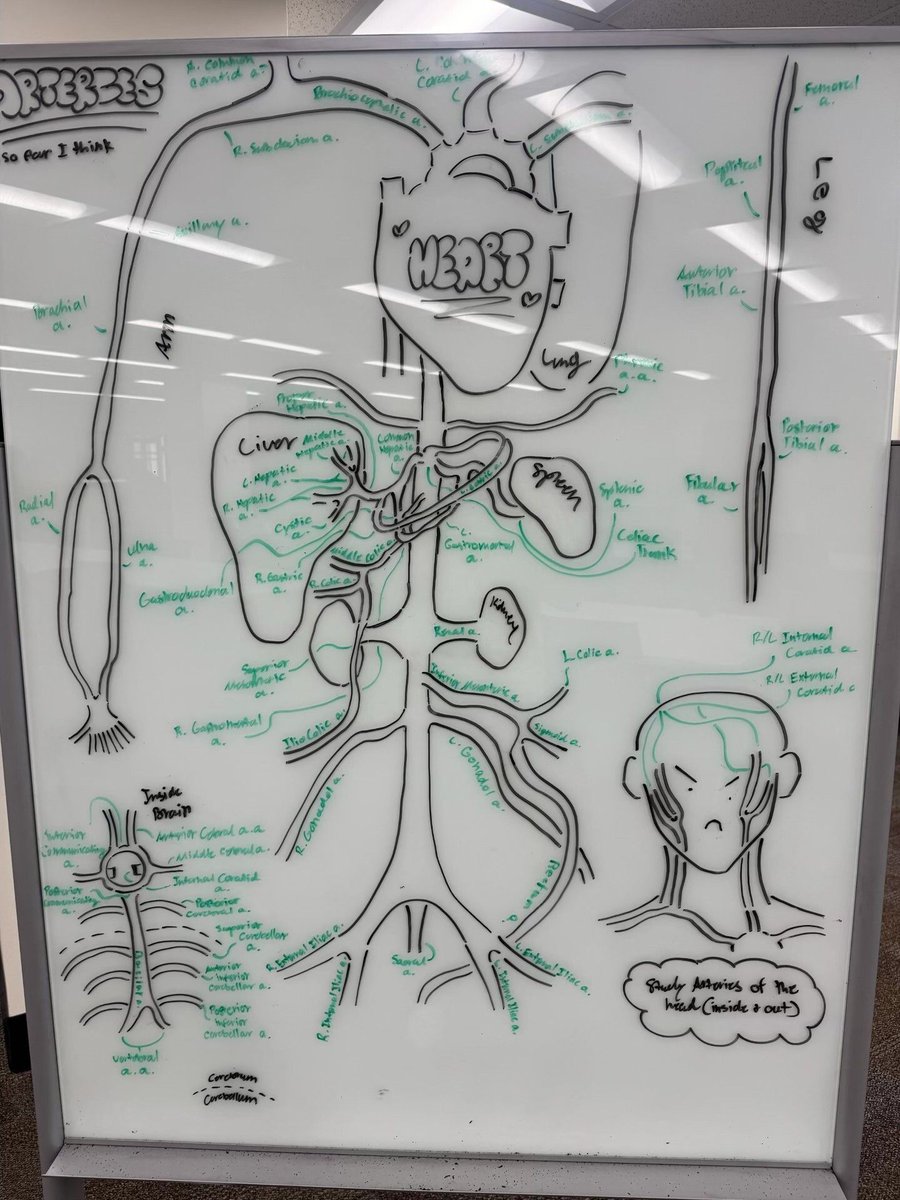 ARTERIES
so far I think
R. Common
Coratid a.
Brachiocephalic a.
L.
Coratid a.
R. Subclavian a.
L. Subclavian a.
Axillary a.
Brachial
a.
Arm
HEART
Lung
Phrenic
a.a.
Femoral
a.
Popliteal
a.
Leg
Anterior
Tibial a.
Posterior
Tibial a.
Fibular
a.
Proper
Hepatic a.
Liver
Middle
Hepatic a.
Common
Hepatic
a.
L. Hepatic
a.
R. Hepatic
a.
Cystic
a.
Spleen
Splenic
a.
Celiac
Trunk
L.
Gastromental
a.
Middle Colic a.
R. Gastric
a.
R. Colic a.
Radial
a.
Ulna
a.
Gastroduodenal
a.
Kidney
Renal a.
Superior
Mesenteric
a.
R. Gastromental
a.
Ilio Colic a.
Inferior Mesenteric a.
L. Colic a.
Sigmoid a.
R. Gonadal a.
L. Gonadal a.
Rectum a.
R. External Iliac a.
R. Internal Iliac a.
Sacral
a.
L. External Iliac a.
L. Internal Iliac a.
R/L Internal
Coratid a
R/L External
Coratid a
Study Arteries of the
head (inside & out)
Inside
Brain
Communicating
a.
Anterior Cerebral a.a
Middle Cerebral a.
Internal Coratid
a.
Posterior
Communicating
a.
Posterior
Cerebral a.
Superior
Cerebellar
a.
Anterior
inferior
cerebellar a.
Basilar a.
Posterior
inferior
cerebellar a.
Vertebral
a.a.
Cerebrum
Cerebellum